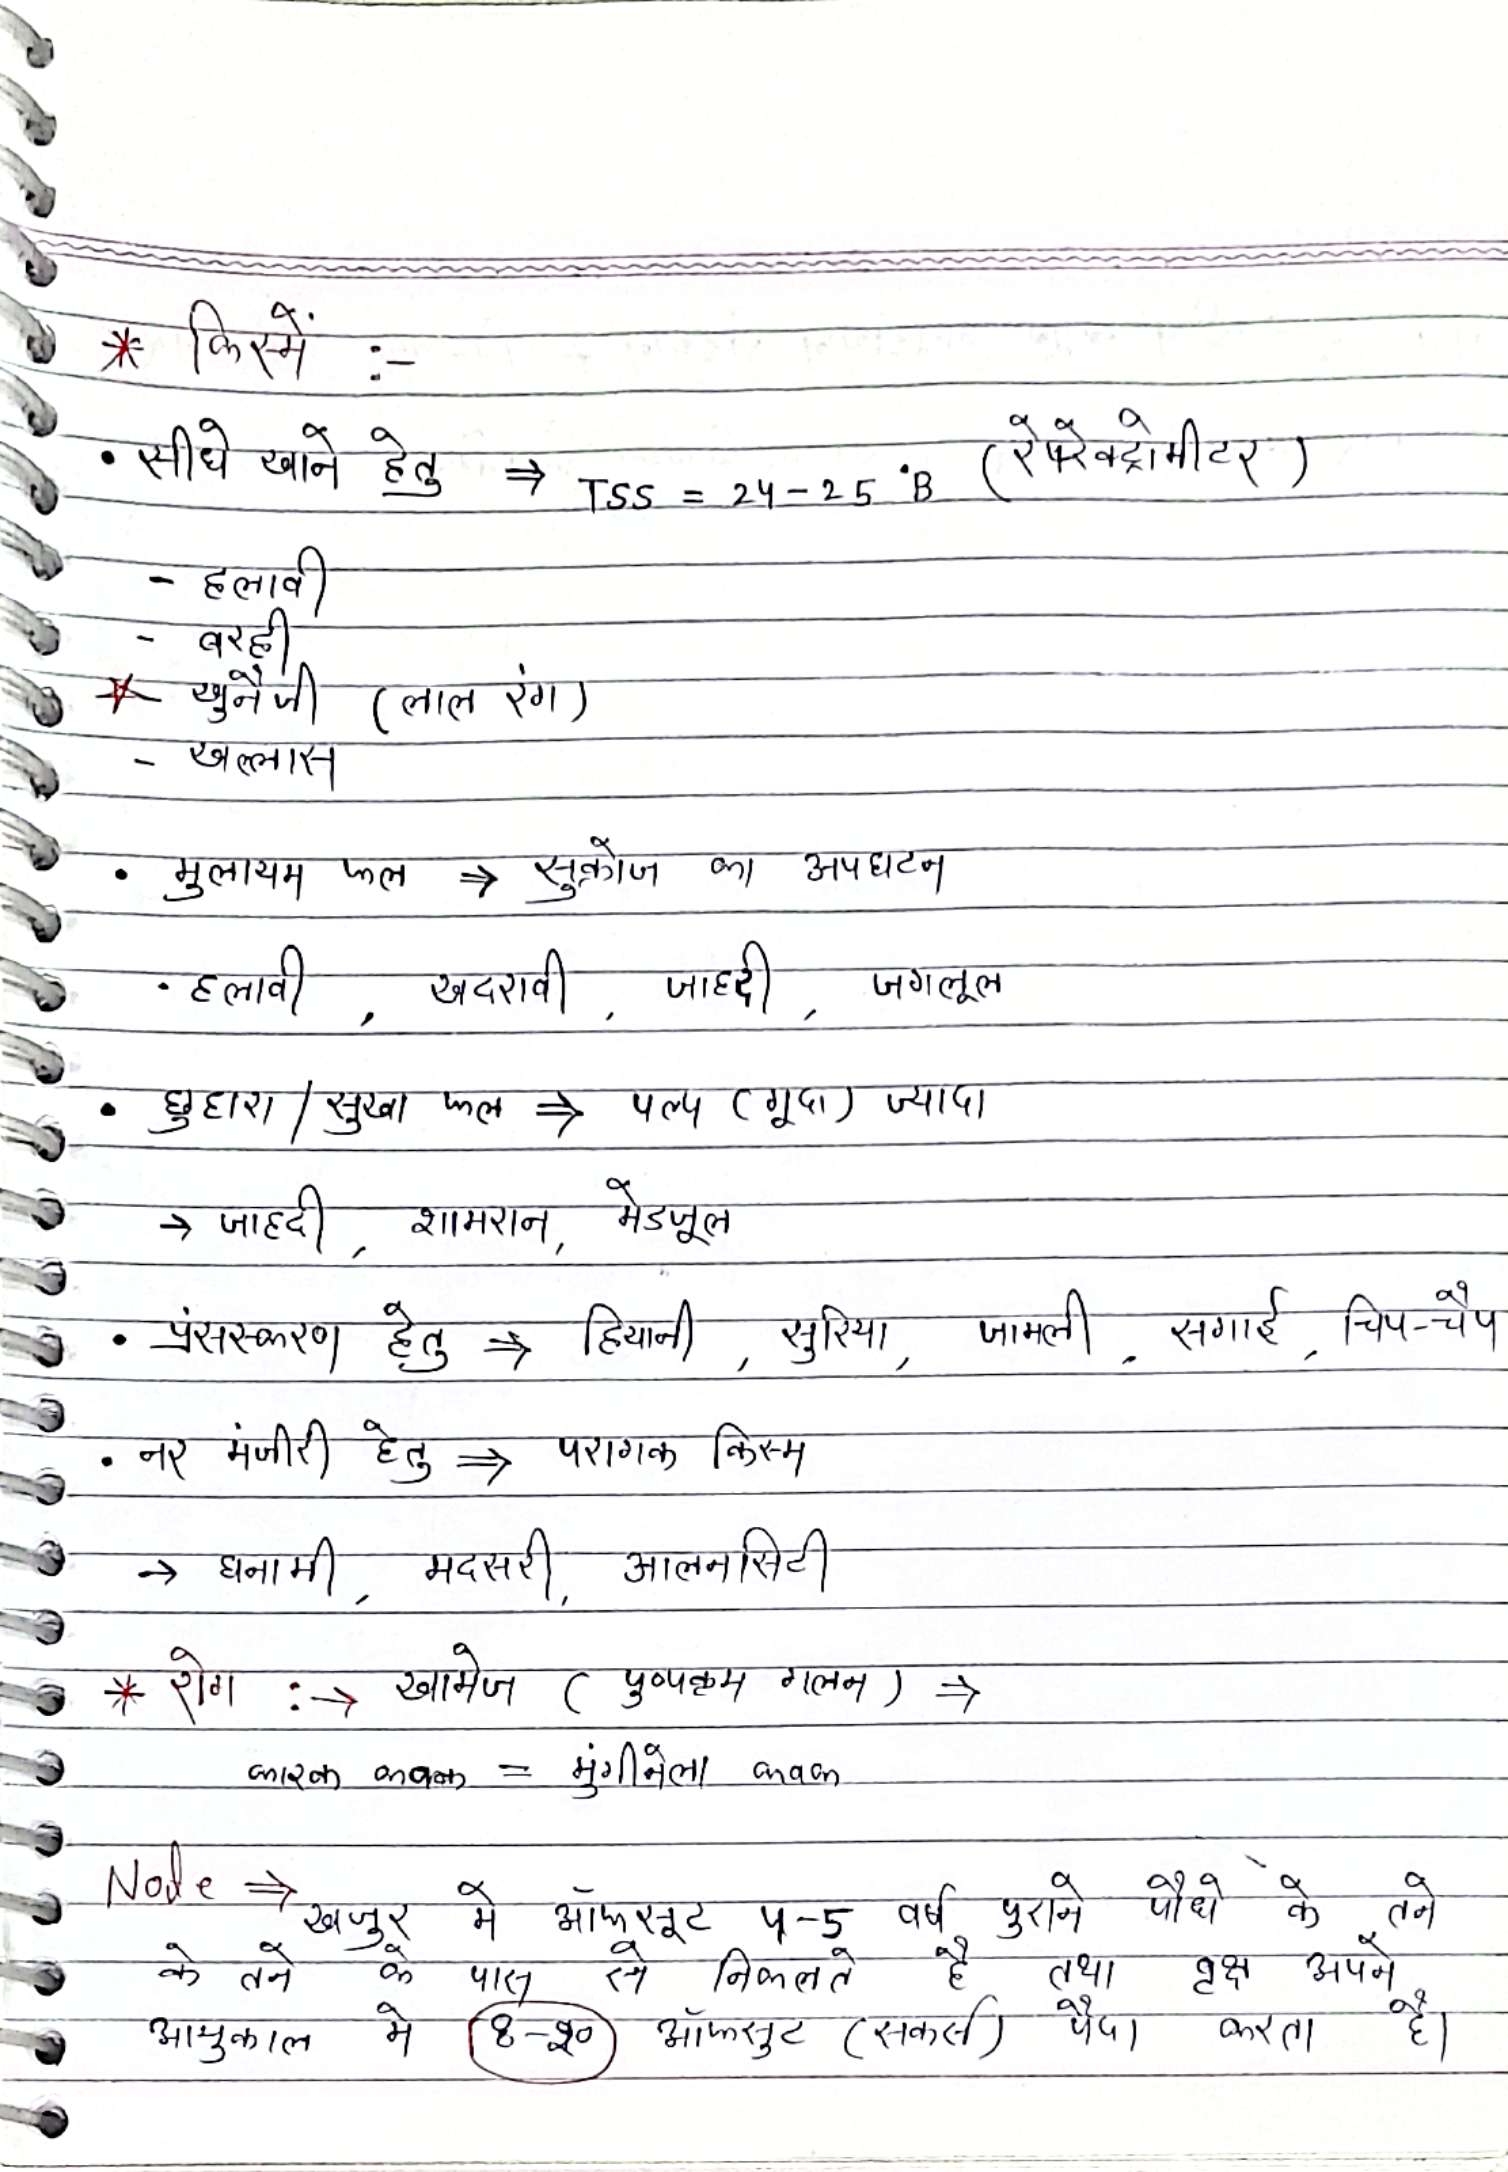 * किस्में :-
• सीधे खाने हेतु ⇒ TSS = 24-25 °B (रेफरेक्ट्रोमीटर)
- हलावी
- बरही
* खुनैजी (लाल रंग)
- खल्लास
• मुलायम फल ⇒ सुक्रोज का अपघटन
• हलावी, खदरावी, जाहदी, जगलूल
• छुहारा/सुखा फल ⇒ पल्प (गूदा) ज्यादा
→ जाहदी, शामरान, मेडजूल
• प्रंसस्करण हेतु ⇒ हियानी, सुरिया, जामली, सगाई, चिप-चैप
• नर मंजीरी हेतु ⇒ परागक किस्म
→ घनामी, मदसरी, आलनसिटी
* रोग :→ खामेज (पुष्पक्रम गलन) ⇒
कारक कवक = मुंगीनेला कवक
Node ⇒
खजुर मे ऑफसूट 4-5 वर्ष पुराने पौधे के तने
के तने के पास से निकलते है तथा वृक्ष अपने
आयुकाल मे ऑफसुट (सकर्स) पैदा करता है।